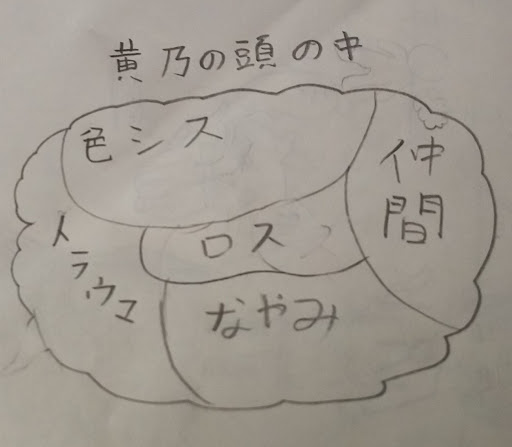 黄乃の頭の中
色シス
仲間
トラウマ
ロス
なやみ